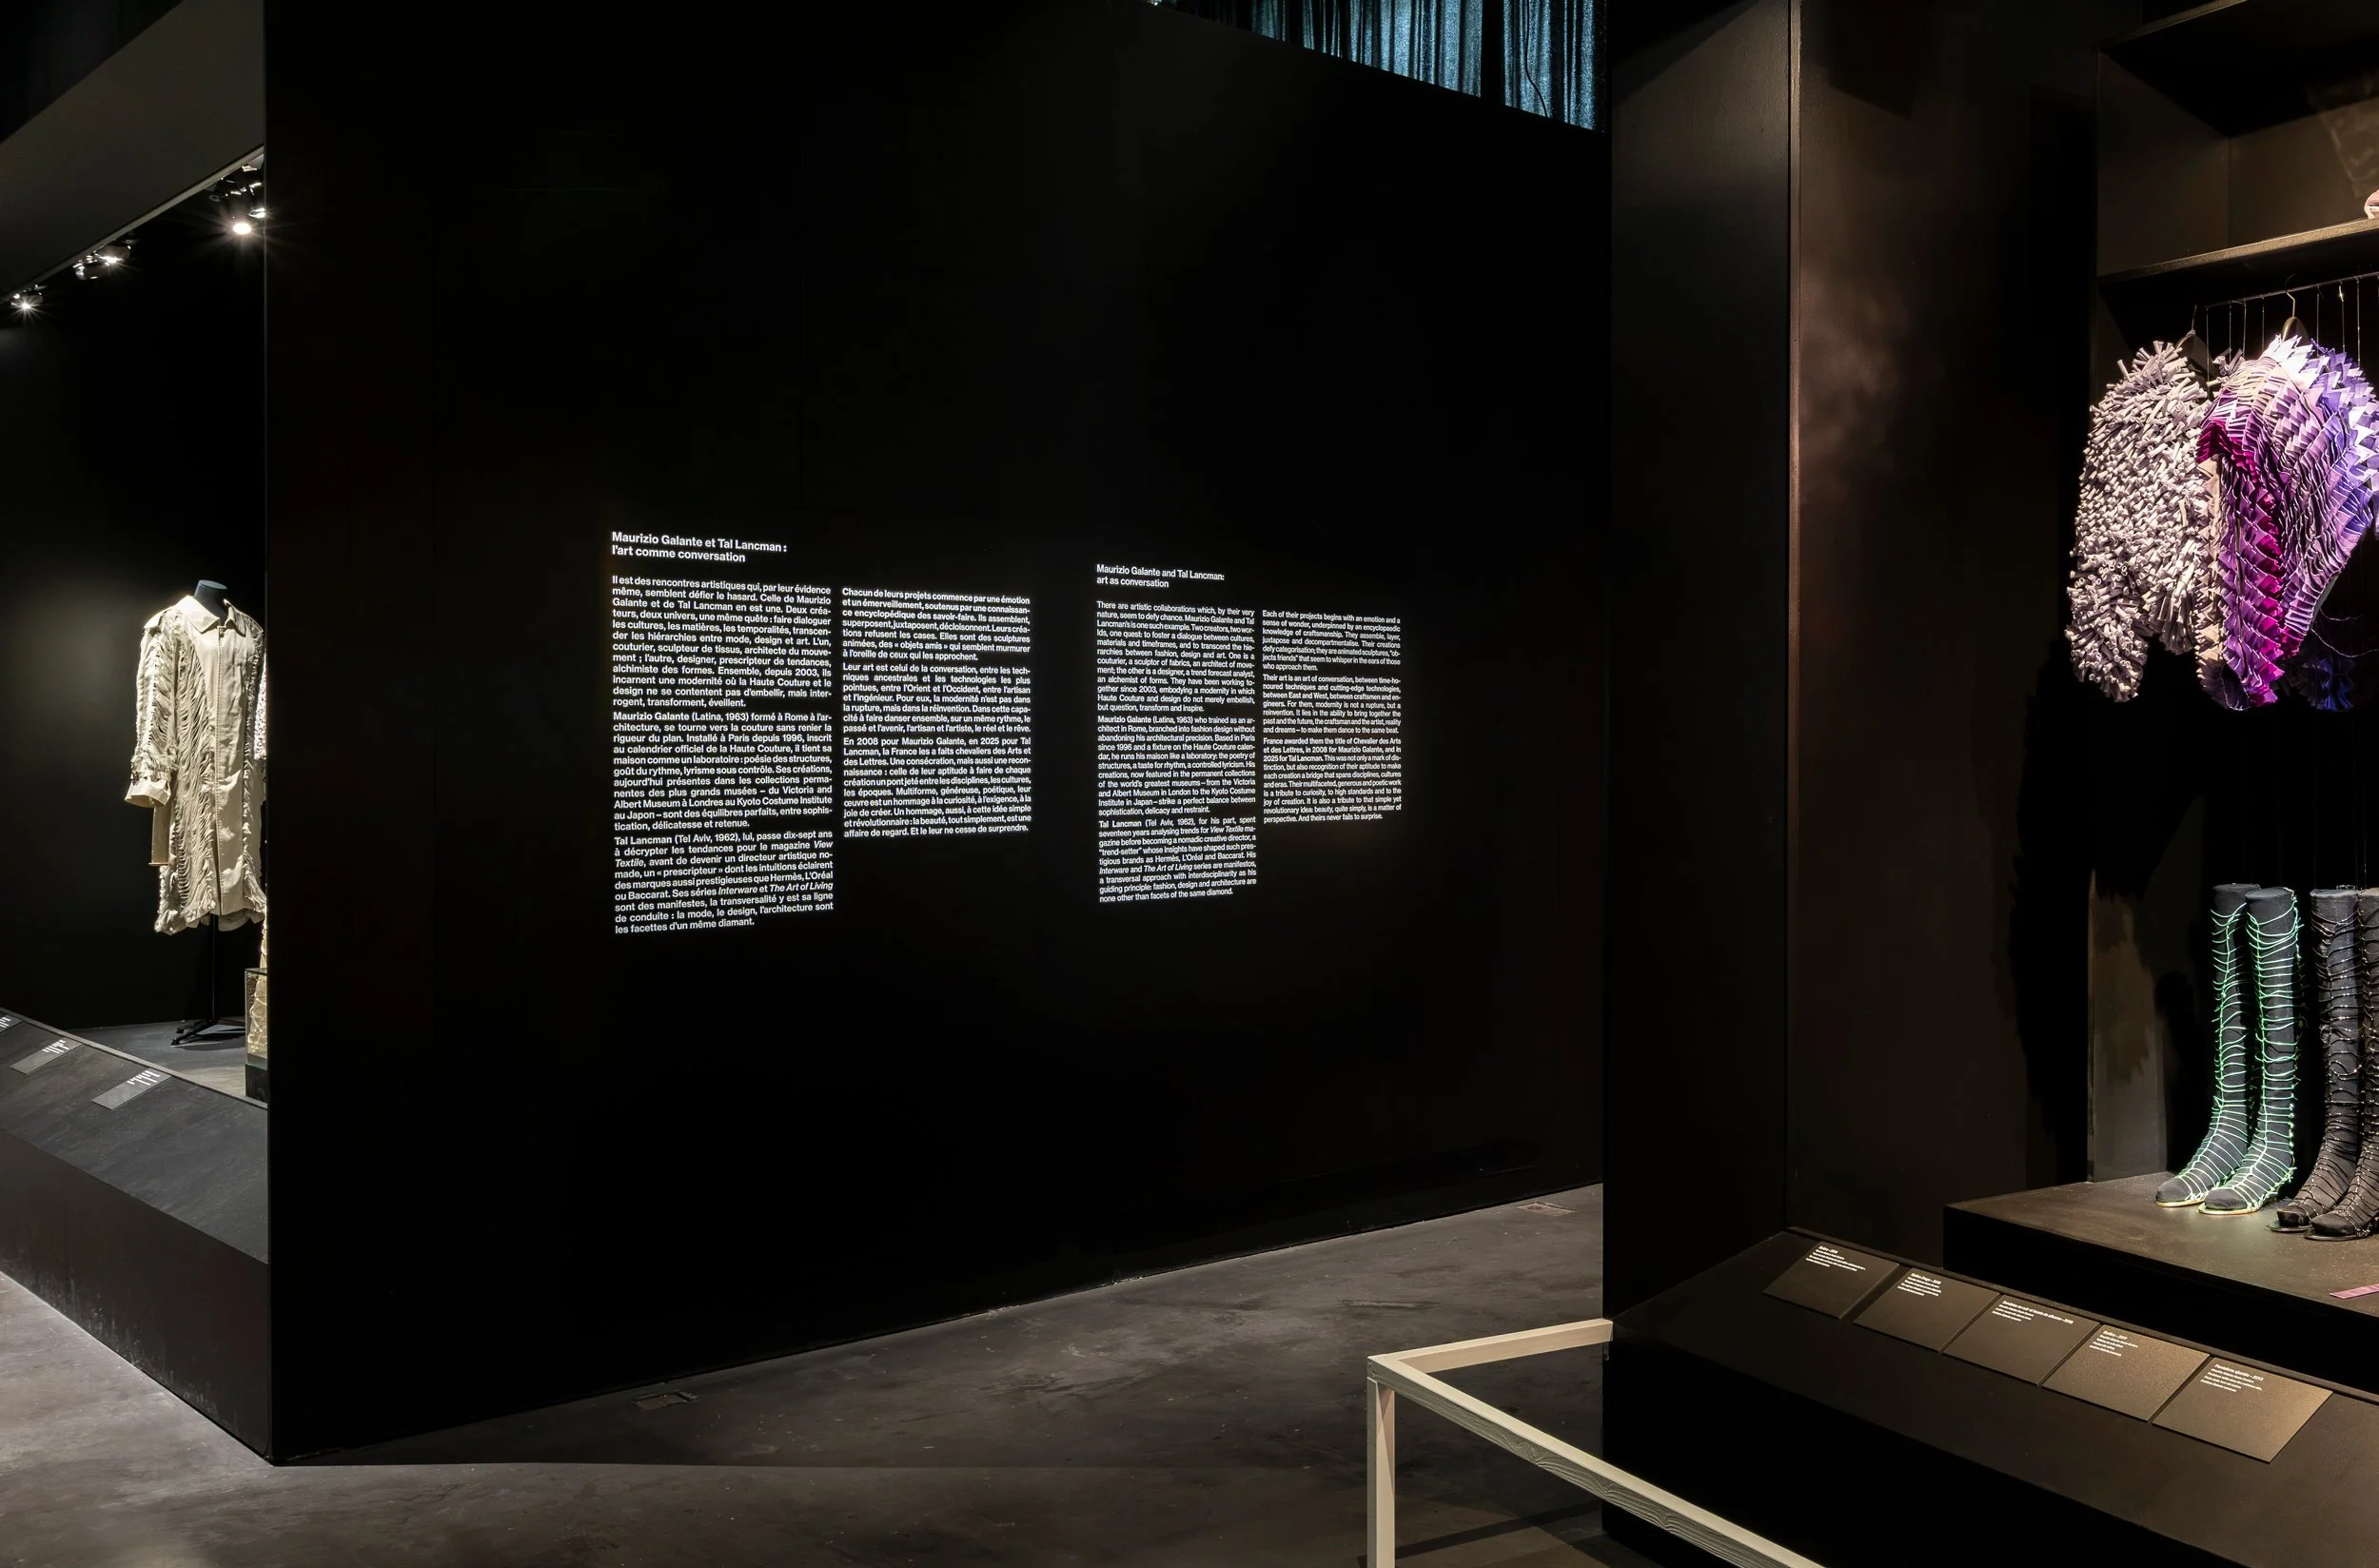 Maurizio Galante et Tal Lancman :
l'art comme conversation
Il est des rencontres artistiques qui, par leur évidence
même, semblent défier le hasard. Celle de Maurizio
Galante et de Tal Lancman en est une. Deux créa-
teurs, deux univers, une même quête : faire dialoguer
les cultures, les matières, les temporalités, transcen-
der les hiérarchies entre mode, design et art. L'un,
couturier, sculpteur de tissus, architecte du mouve-
ment ; l'autre, designer, prescripteur de tendances,
alchimiste des formes. Ensemble, depuis 2003, ils
incarnent une modernité où la Haute Couture et le
design ne se contentent pas d'embellir, mais inter-
rogent, transforment, éveillent.
Maurizio Galante (Latina, 1963) formé à Rome à l'ar-
chitecture, se tourne vers la couture sans renier la
rigueur du plan. Installé à Paris depuis 1996, inscrit
au calendrier officiel de la Haute Couture, il tient sa
maison comme un laboratoire : poésie des structures,
goût du rythme, lyrisme sous contrôle. Ses créations,
aujourd'hui présentes dans les collections perma-
nentes des plus grands musées – du Victoria and
Albert Museum à Londres au Kyoto Costume Institute
au Japon – sont des équilibres parfaits, entre sophis-
tication, délicatesse et retenue.
Tal Lancman (Tel Aviv, 1962), lui, passe dix-sept ans
à décrypter les tendances pour le magazine View
Textile, avant de devenir un directeur artistique no-
made, un « prescripteur » dont les intuitions éclairent
des marques aussi prestigieuses que Hermès, L'Oréal
ou Baccarat. Ses séries Interware et The Art of Living
sont des manifestes, la transversalité y est sa ligne
de conduite : la mode, le design, l'architecture sont
les facettes d'un même diamant.
Chacun de leurs projets commence par une émotion
et un émerveillement, soutenus par une connaissan-
ce encyclopédique des savoir-faire. Ils assemblent,
superposent, juxtaposent, décloisonnent. Leurs créa-
tions refusent les cases. Elles sont des sculptures
animées, des « objets amis » qui semblent murmurer
à l'oreille de ceux qui les approchent.
Leur art est celui de la conversation, entre les tech-
niques ancestrales et les technologies les plus
pointues, entre l'Orient et l'Occident, entre l'artisan
et l'ingénieur. Pour eux, la modernité n'est pas dans
la rupture, mais dans la réinvention. Dans cette capa-
cité à faire danser ensemble, sur un même rythme, le
passé et l'avenir, l'artisan et l'artiste, le réel et le rêve.
En 2008 pour Maurizio Galante, en 2025 pour Tal
Lancman, la France les a faits chevaliers des Arts et
des Lettres. Une consécration, mais aussi une recon-
naissance : celle de leur aptitude à faire de chaque
création un pont jeté entre les disciplines, les cultures,
les époques. Multiforme, généreuse, poétique, leur
œuvre est un hommage à la curiosité, à l'exigence, à la
joie de créer. Un hommage, aussi, à cette idée simple
et révolutionnaire : la beauté, tout simplement, est une
affaire de regard. Et le leur ne cesse de surprendre.
Maurizio Galante and Tal Lancman:
art as conversation
There are artistic collaborations which, by their very
nature, seem to defy chance. Maurizio Galante and Tal
Lancman's is one such example. Two creators, two wor-
lds, one quest: to foster a dialogue between cultures,
materials and timeframes, and to transcend the hie-
rarchies between fashion, design and art. One is a
couturier, a sculptor of fabrics, an architect of move-
ment; the other is a designer, a trend forecast analyst,
an alchemist of forms. They have been working to-
gether since 2003, embodying a modernity in which
Haute Couture and design do not merely embellish,
but question, transform and inspire.
Maurizio Galante (Latina, 1963) who trained as an ar-
chitect in Rome, branched into fashion design without
abandoning his architectural precision. Based in Paris
since 1996 and a fixture on the Haute Couture calen-
dar, he runs his maison like a laboratory: the poetry of
structures, a taste for rhythm, a controlled lyricism. His
creations, now featured in the permanent collections
of the world's greatest museums – from the Victoria
and Albert Museum in London to the Kyoto Costume
Institute in Japan – strike a perfect balance between
sophistication, delicacy and restraint.
Tal Lancman (Tel Aviv, 1962), for his part, spent
seventeen years analysing trends for View Textile ma-
gazine before becoming a nomadic creative director, a
"trend-setter" whose insights have shaped such pres-
tigious brands as Hermès, L'Oréal and Baccarat. His
Interware and The Art of Living series are manifestos,
a transversal approach with interdisciplinarity as his
guiding principle: fashion, design and architecture are
none other than facets of the same diamond.
Each of their projects begins with an emotion and a
sense of wonder, underpinned by an encyclopaedic
knowledge of craftsmanship. They assemble, layer,
juxtapose and decompartmentalise. Their creations
defy categorisation; they are animated sculptures, "ob-
jects friends" that seem to whisper in the ears of those
who approach them.
Their art is an art of conversation, between time-ho-
noured techniques and cutting-edge technologies,
between East and West, between craftsmen and en-
gineers. For them, modernity is not a rupture, but a
reinvention. It lies in the ability to bring together the
past and the future, the craftsman and the artist, reality
and dreams – to make them dance to the same beat.
France awarded them the title of Chevalier des Arts
et des Lettres, in 2008 for Maurizio Galante, and in
2025 for Tal Lancman. This was not only a mark of dis-
tinction, but also recognition of their aptitude to make
each creation a bridge that spans disciplines, cultures
and eras. Their multifaceted, generous and poetic work
is a tribute to curiosity, to high standards and to the
joy of creation. It is also a tribute to that simple yet
revolutionary idea: beauty, quite simply, is a matter of
perspective. And theirs never fails to surprise.